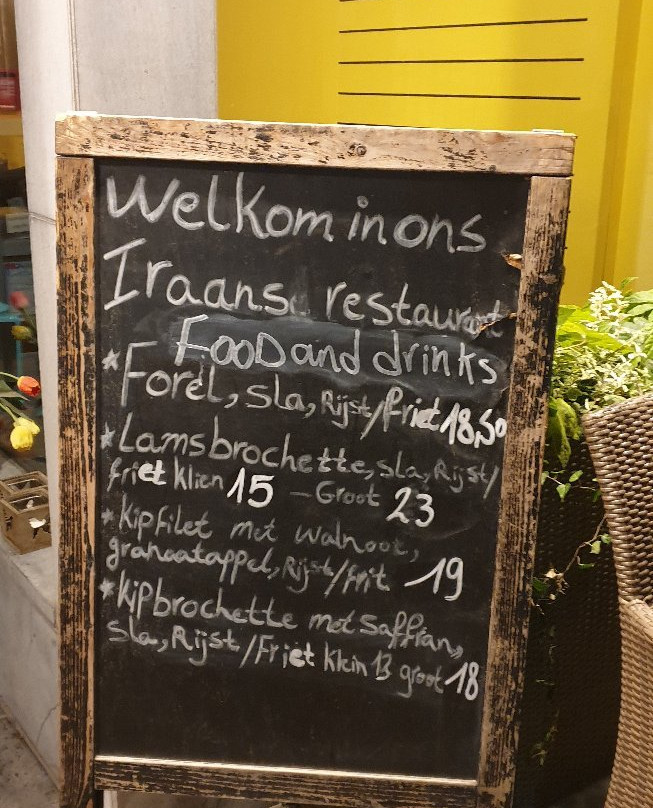 Welkom in ons
Iraans restaurant
Food and drinks
*Forel, sla, Rijst/friet 18,50
*Lamsbrochette, sla, Rijst/
friet klien 15 - Groot 23
*Kipfilet met walnoot,
granaatappel, Rijst/frit 19
*kipbrochette met Saffran,
sla, Rijst/Friet klein 13 groot 18